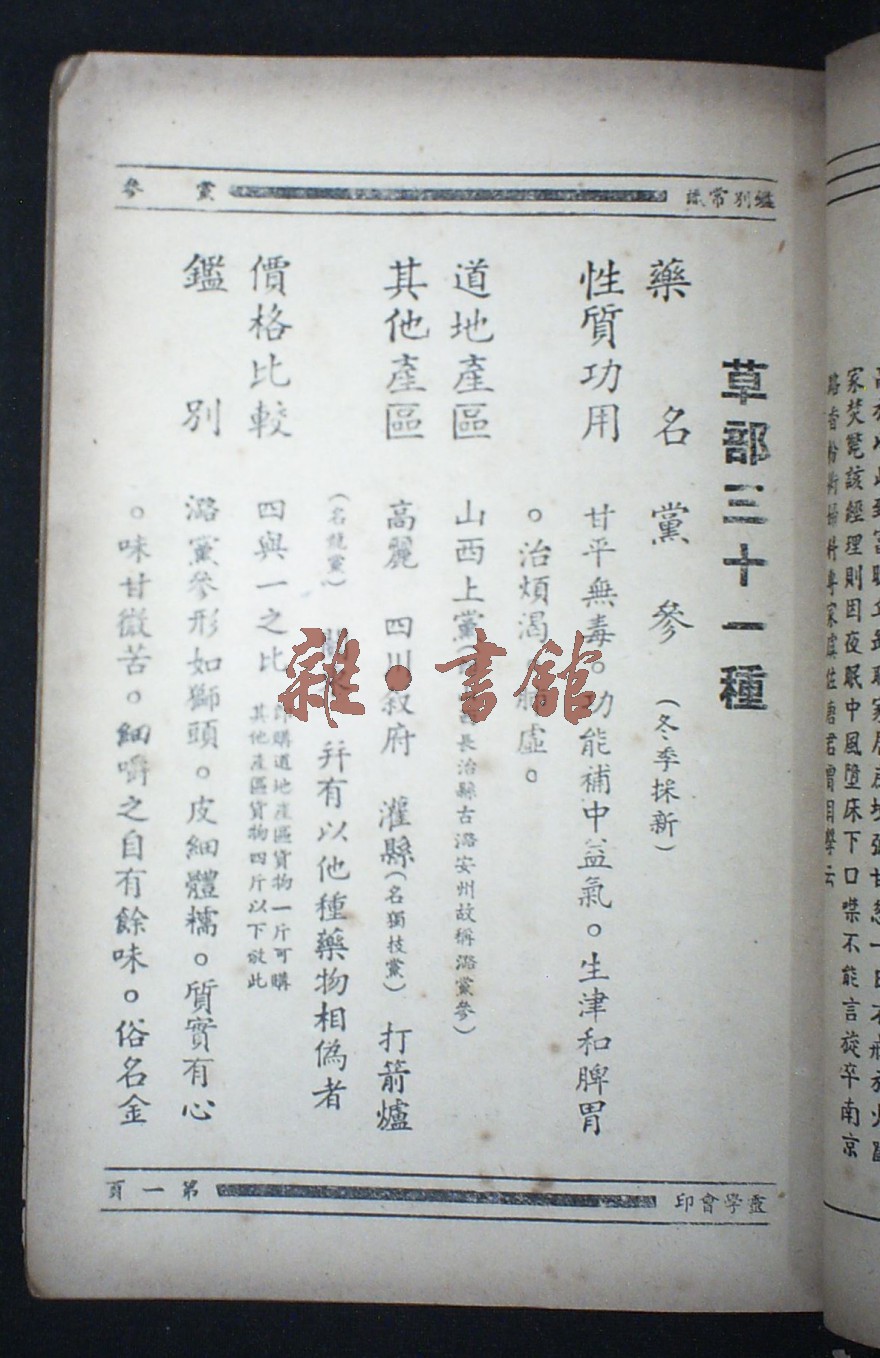 鑑別常識
黨參
草部三十一種
藥名 黨參(冬季採新)
性質功用 甘平無毒。功能補中益氣。生津和脾胃
。治煩渴。肺虛。
道地產區 山西上黨(長治縣古潞安州故稱潞黨參)
其他產區 高麗 四川敘府 灌縣(名獨枝黨) 打箭爐
(名龍黨) 并有以他種藥物相偽者
價格比較 四與一之比 即購道地產區貨物一斤可購
其他產區貨物四斤以下放此
鑑別 潞黨參形如獅頭。皮細體糯。質實有心
。味甘微苦。細嚼之自有餘味。俗名金
靈學會印
第一頁
雜·書館
家焚斃該經理則因夜眠中風墮床下口噤不能言旋卒南京